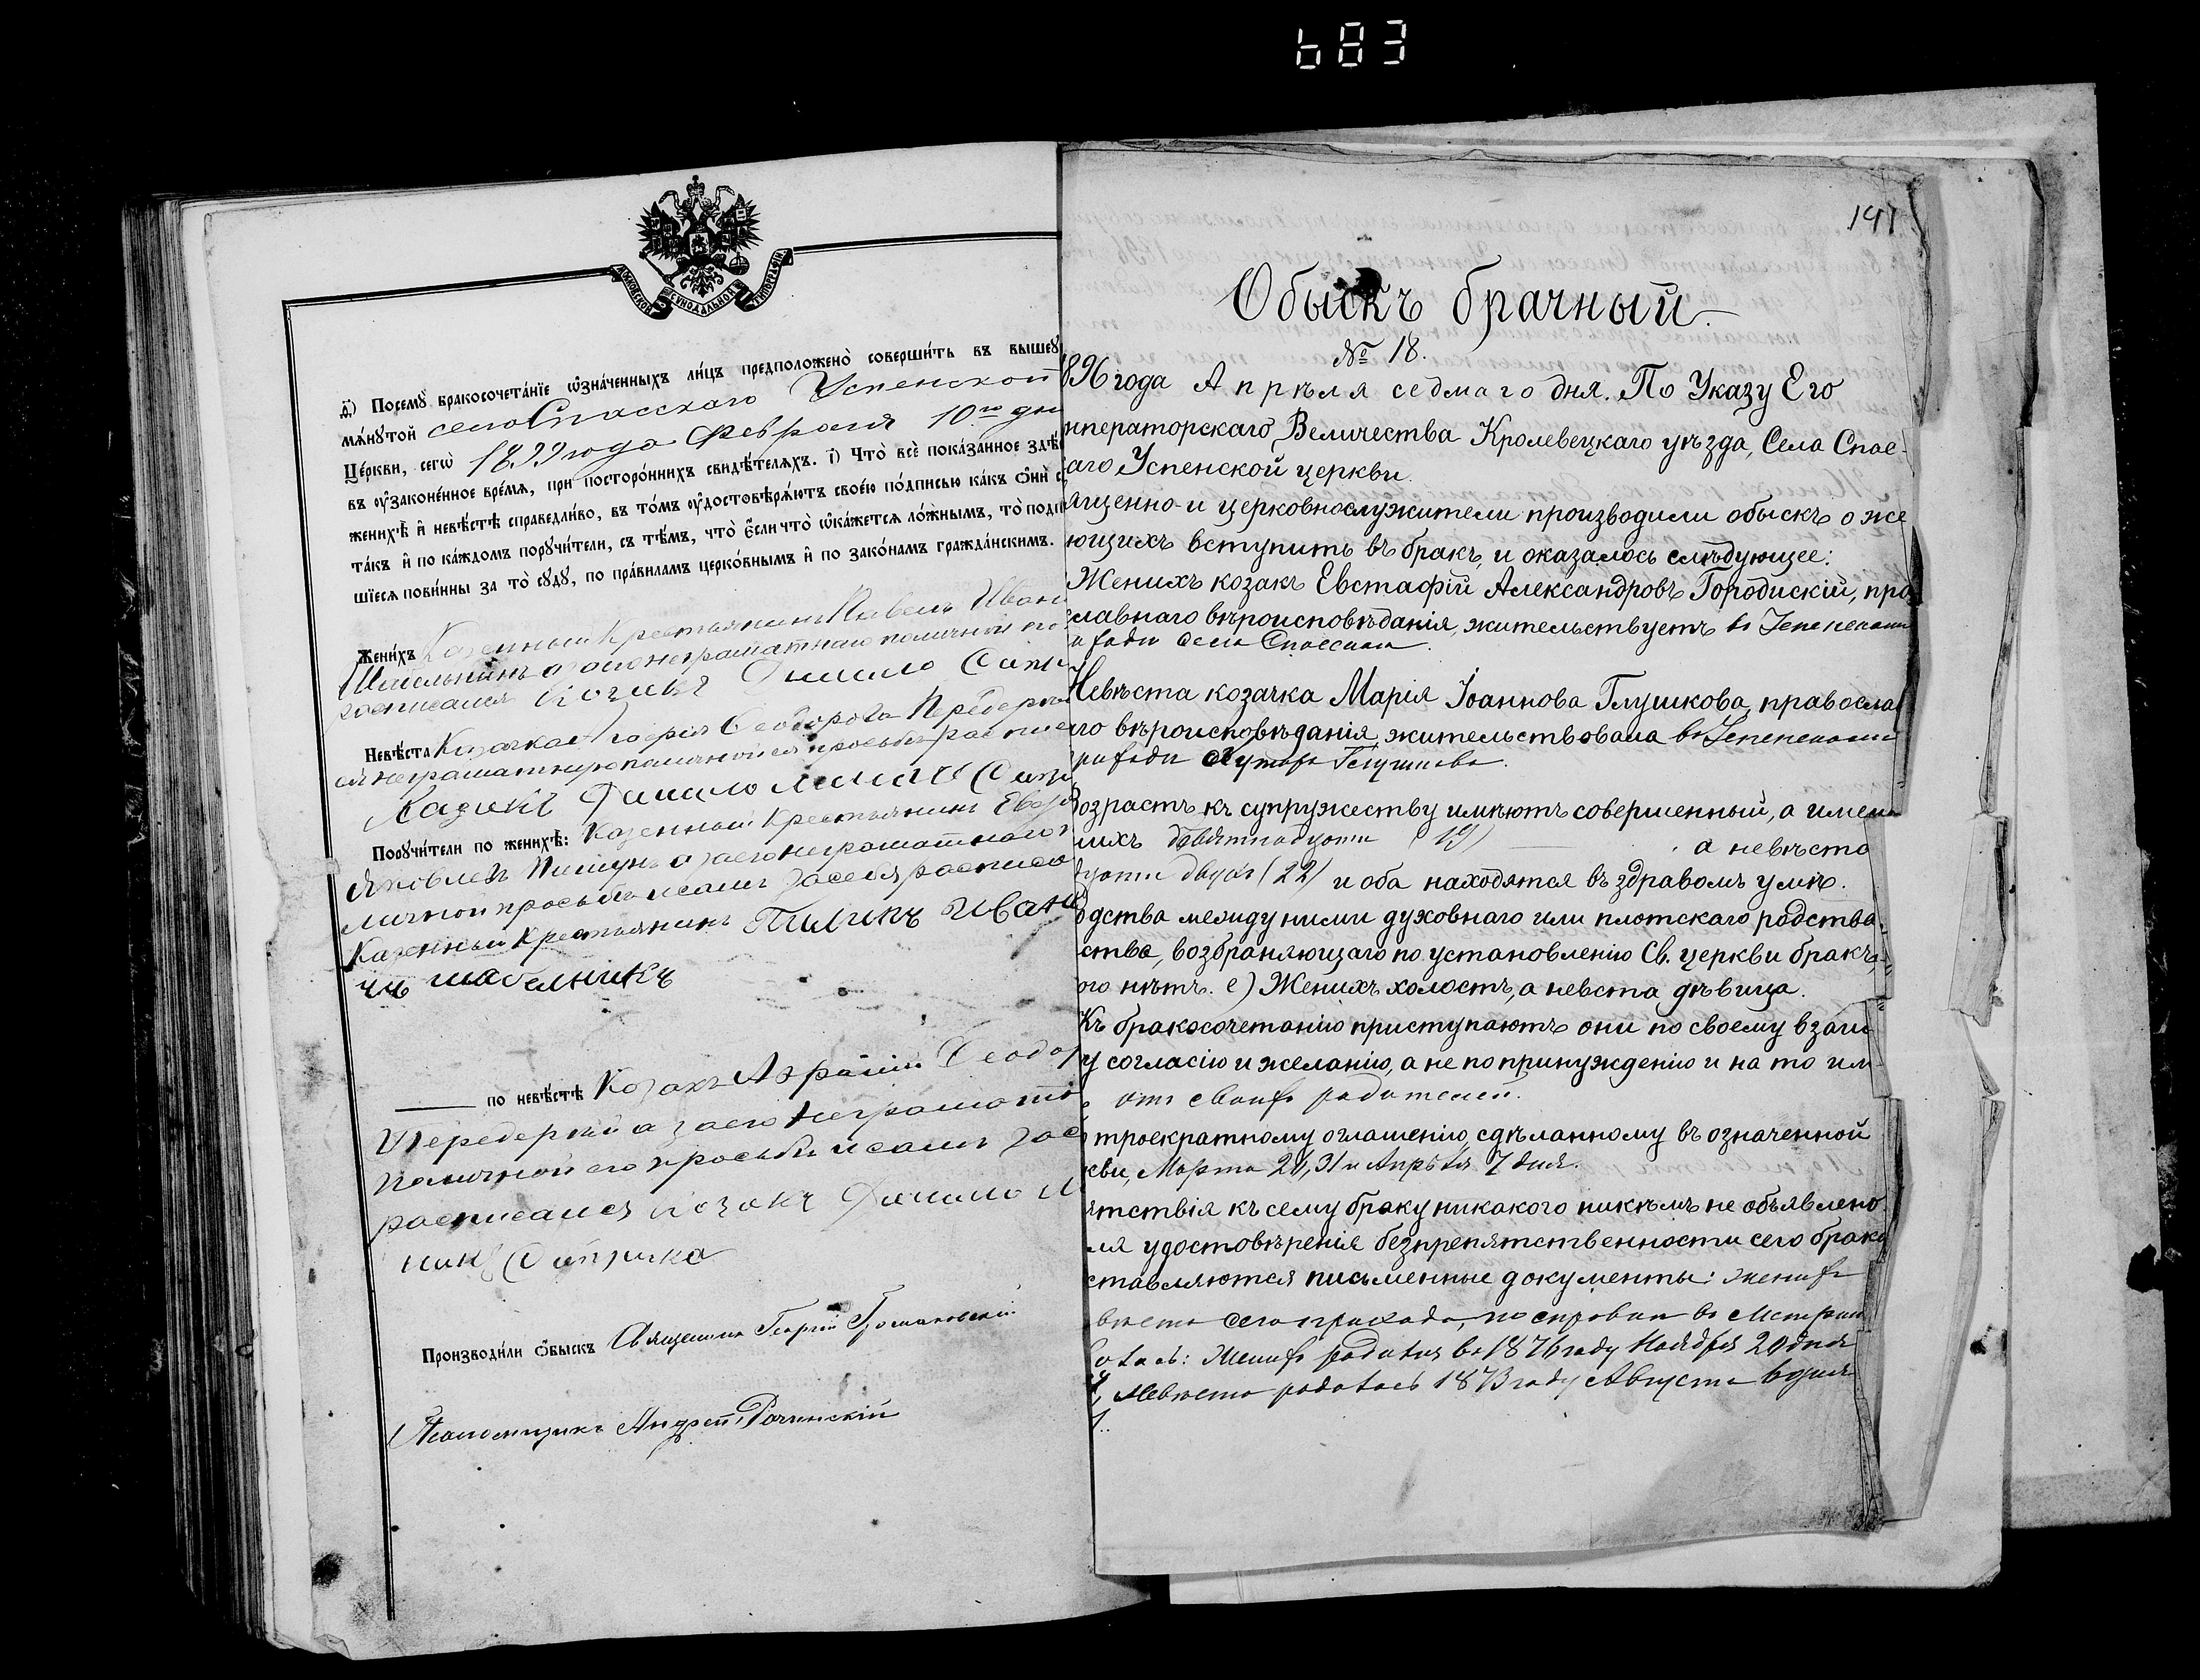 683
МОСКОВСКОЙ СѴНОДАЛЬНОЙ ТИПОГРАФІИ
д҃і) Посемꙋ̀ бракосочета́нїе ѡ҆зна́ченныхъ ли́цъ предположено̀ соверши́ть въ вышеꙋ
мѧ́нꙋтой села Спасскаго Успенской
Це́ркви, сегѡ̀ 1899 года Февраля 10го дня
въ ᲂу҆зако́не́нное вре́мѧ, при посторо́ннихъ свидѣ́телѧхъ. і҃) Что̀ всѐ пока́занное здѣ́
женихѣ̀ и҆ невѣ́стѣ справедли́во, въ то́мъ ᲂу҆достовѣрѧ́ютъ свое́ю по́дписью ка́къ ѻ҆нѝ с
та́къ и҆ по ка́ждомъ порꙋчи́тели, съ тѣ́мъ, что̀ є҆́сли что̀ ѡ҆ка́жетсѧ ло́жнымъ, то̀ подп
шїесѧ пови́нны за то̀ сꙋдꙋ̀, по пра́виламъ церко́внымъ и҆ по зако́намъ гражда́нскимъ.
Жени́хъ Казенный крестьянинъ Павелъ Иван
а за его неграматнаго по личной его
росписался Козакъ Данило
Невѣ́ста Козачка Феодорова Передері
ея неграматную по личной ея просьбѣ росписа
Казакъ Данило
Порꙋчи́тели по женихѣ̀: Казенный крестьянинъ
Яковлевъ а за его неграматнаго
личной просьбѣ и самъ за себя росписа
Казенный крестьянинъ Пилипъ Ивано
чъ шабелникъ
по невѣ́стѣ Козакъ Феодор
Передерій а за его неграмотн
по личной его просьбѣ и самъ за с
росписался козакъ Данило
Производи́ли ѻ҆́быскъ Священникъ Георгій
Псаломщикъ Андрей Рачинскій
141
Обыскъ брачный.
№ 18.
1896 года Апрѣля седмаго дня. По Указу Его
мператорскаго Величества Кролевецкаго уѣзда, Села Спас-
аго Успенской церкви.
ященно- и церковнослужители производили обыскъ о же
ющихъ вступить въ бракъ, и оказалось слѣдующее:
Женихъ козакъ Евстафій Александровъ Городискій, пра
славнаго вѣроисповѣданія, жительствуетъ въ Успенскомъ
села Спасскаго.
Невѣста козачка Марія Іоаннова Глушкова, правосла
го вѣроисповѣданія жительствовала въ Успенскомъ
приходѣ хутора Глушкова.
Возрастъ къ супружеству имѣютъ совершенный, а имен
нихъ девятнадцати (19) а невѣста
дцати двухъ (22) и оба находятся въ здравомъ умѣ.
одства между ними духовнаго или плотскаго родства
ства, возбраняющаго по установленію Св. церкви бракъ,
ого нѣтъ. е) Женихъ холостъ, а невста дѣвица.
Къ бракосочетанію приступаютъ они по своему взаи
у согласію и желанію, а не по принужденію и на то им
отъ своихъ родителей.
троекратному оглашенію, сдѣланному въ означенной
кви, Марта 24, 31 и Апрѣля 7 дня.
ятствія къ сему браку никакого никѣмъ не объявлено
ля удостовѣренія безпрепятственности сего брака
ставляются письменные документы: женихъ
вѣста сего прихода, по справкѣ въ Метрик
лось: Женихъ родился въ 1876 году Ноября 20 дня
Невѣста родилась 1873 году Августа 6 дня